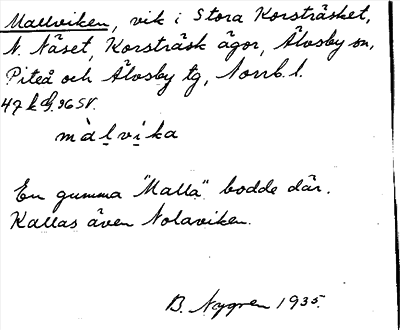 Mallviken, vik i Stora Korsträsket,
N. Näset, Korsträsk ägor, Älvsby sn,
Piteå och Älvsby tg, Norrb. l.
màlvika
En gumma "Malla" bodde där.
Kallas även Nolaviken.
B. Nygren 1935.